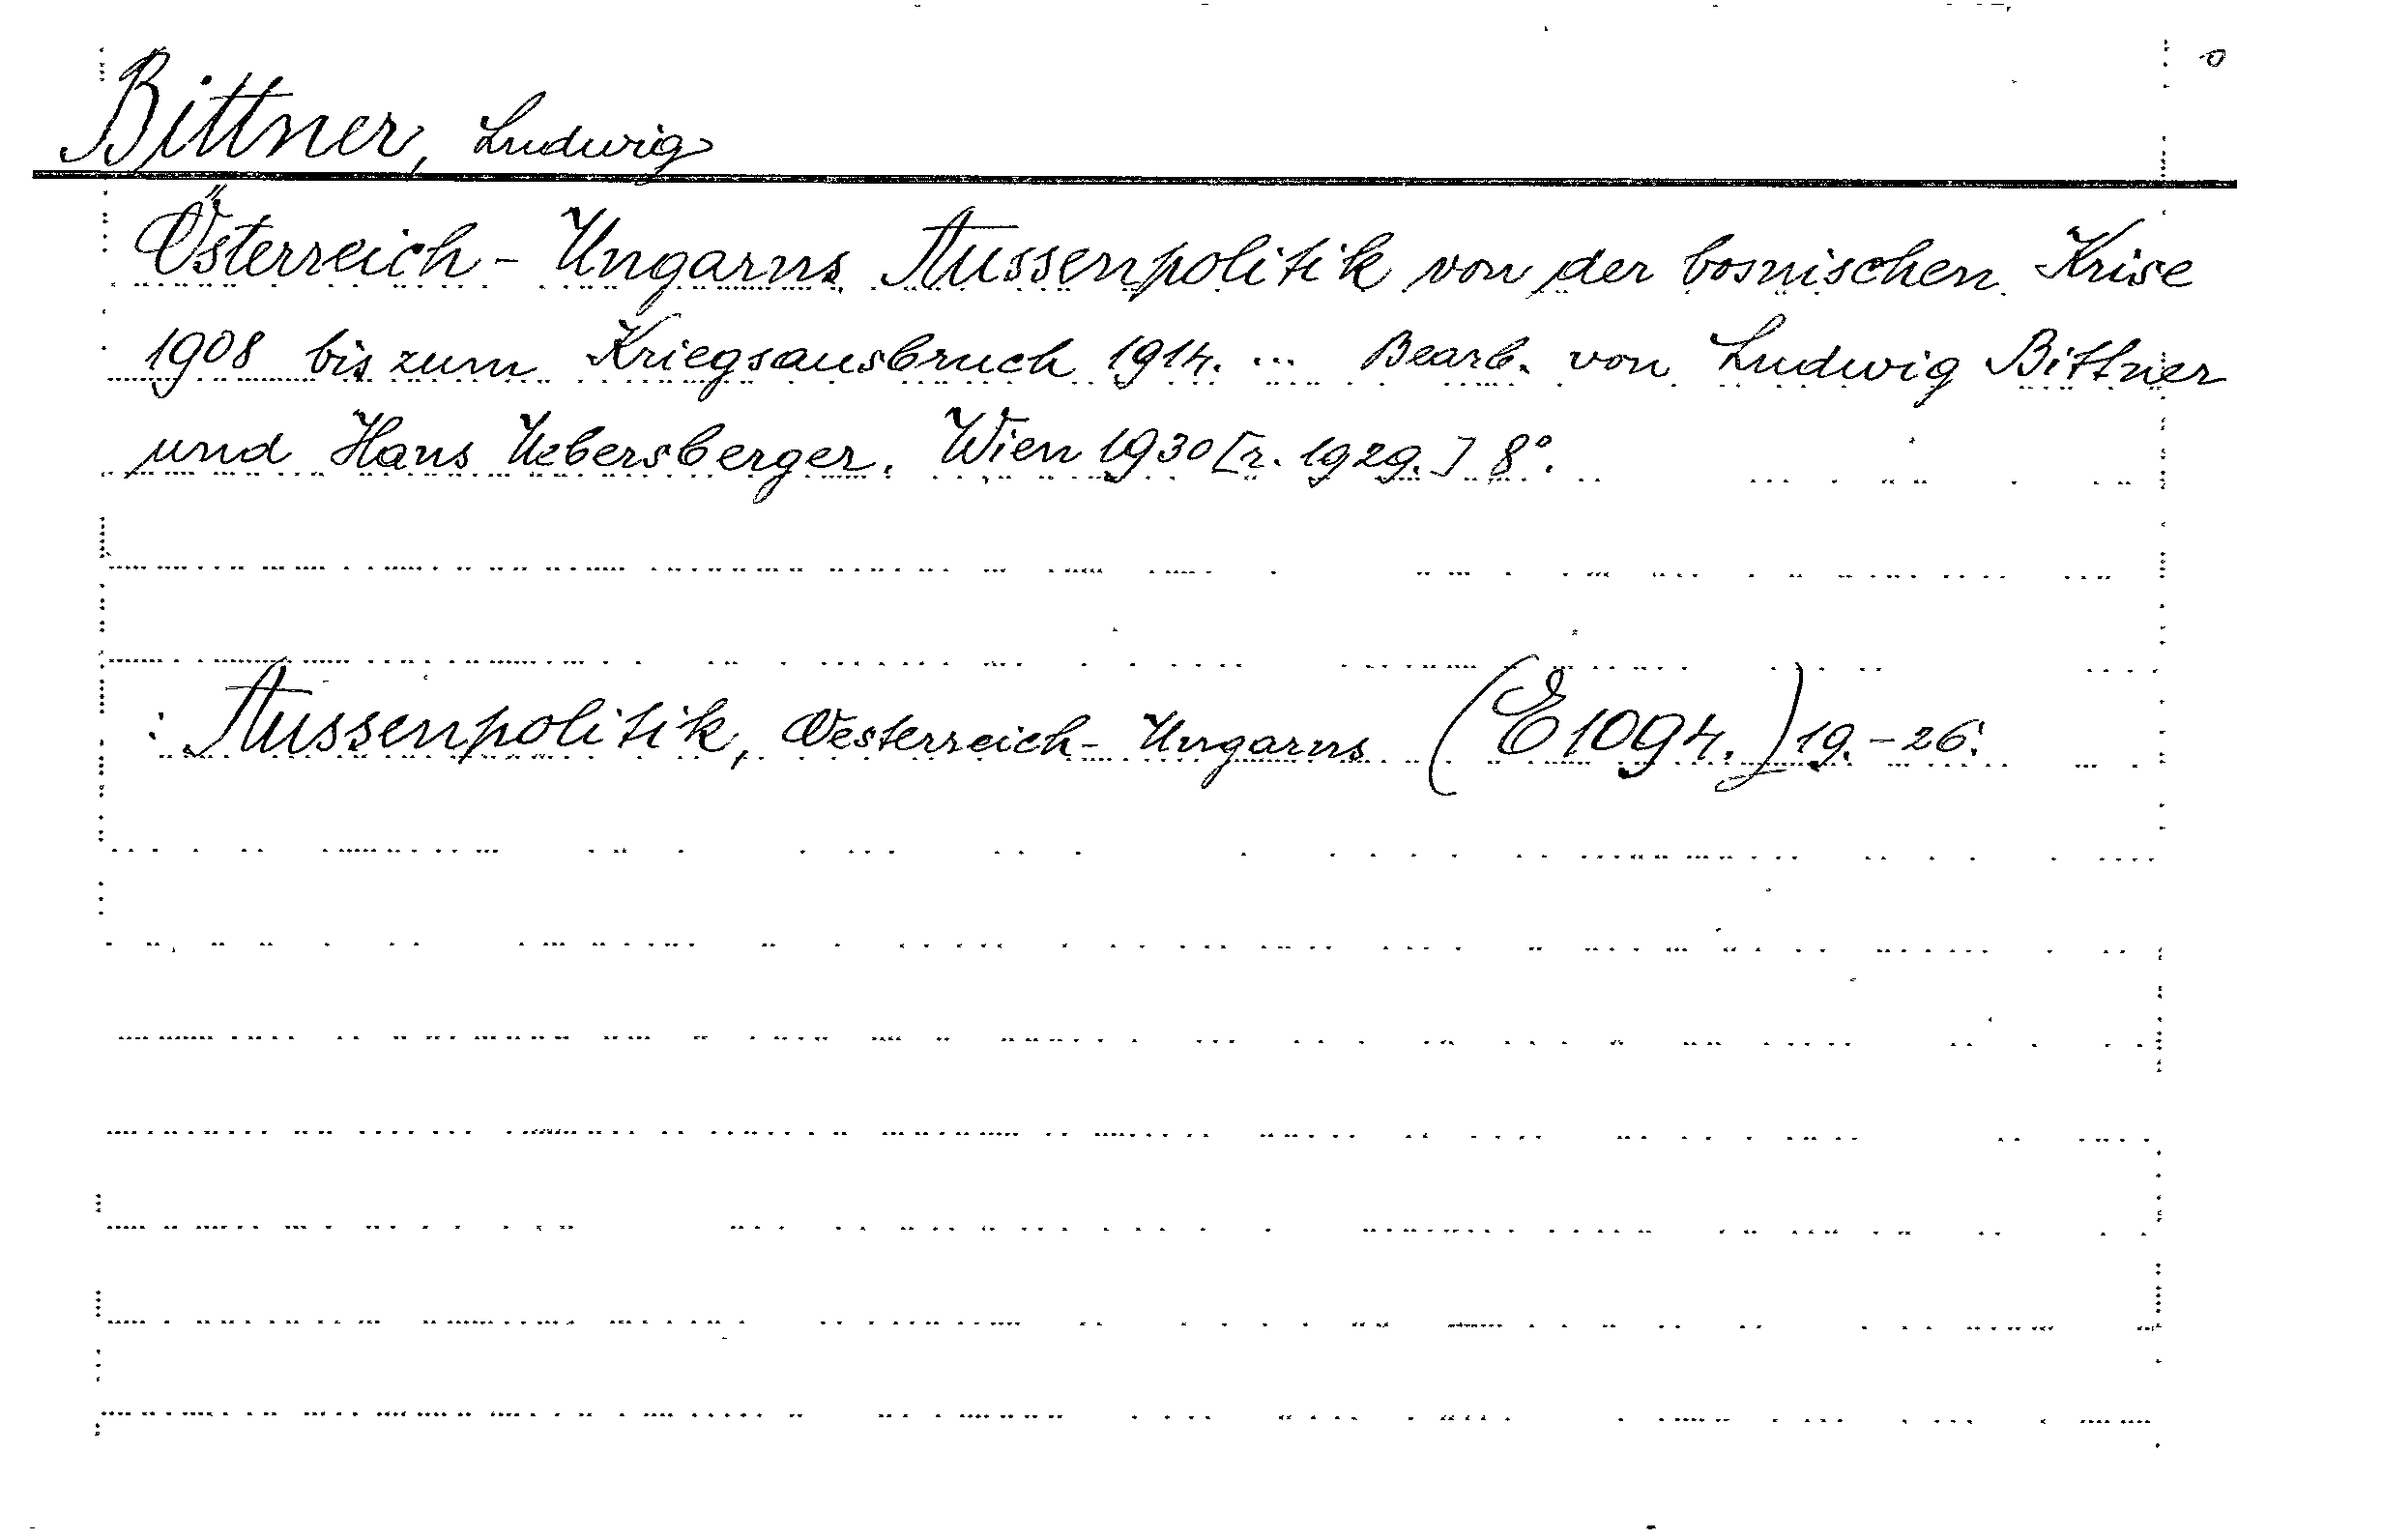 Bittner, Ludwig
Österreich-Ungarns Aussenpolitik von der bosnischen Krise
1908 bis zum Kriegsausbruch 1914. ... Bearb. von Ludwig Bittner
und Hans Uebersberger. Wien 1930 [r. 1929.] 8°.
: Aussenpolitik, Oesterreich-Ungarns (E 1094.) 19.-26.